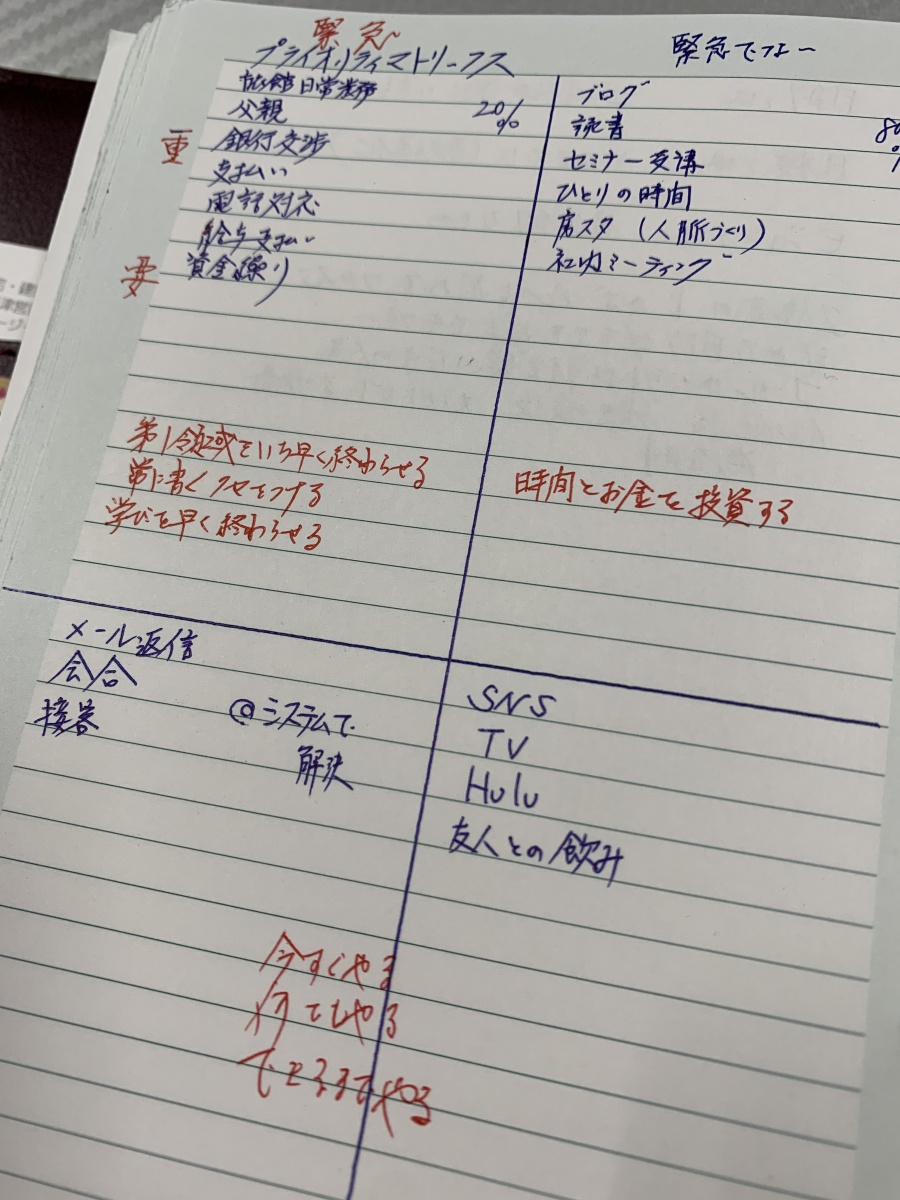 緊急
プライオリティマトリークス
旅館日常業務
父親
20%
銀行交渉
支払い
電話対応
給与支払い
資金繰り
重
要
緊急でない
ブログ
読書
80%
セミナー受講
ひとりの時間
席スタ（人脈づくり）
社内ミーティング
第1領域をいち早く終わらせる
常に書くクセをつける
学びを早く終わらせる
時間とお金を投資する
メール返信
会合
接客
@システムで
解決
SNS
TV
Hulu
友人との飲み
今すぐやる
何でもやる
できるまでやる